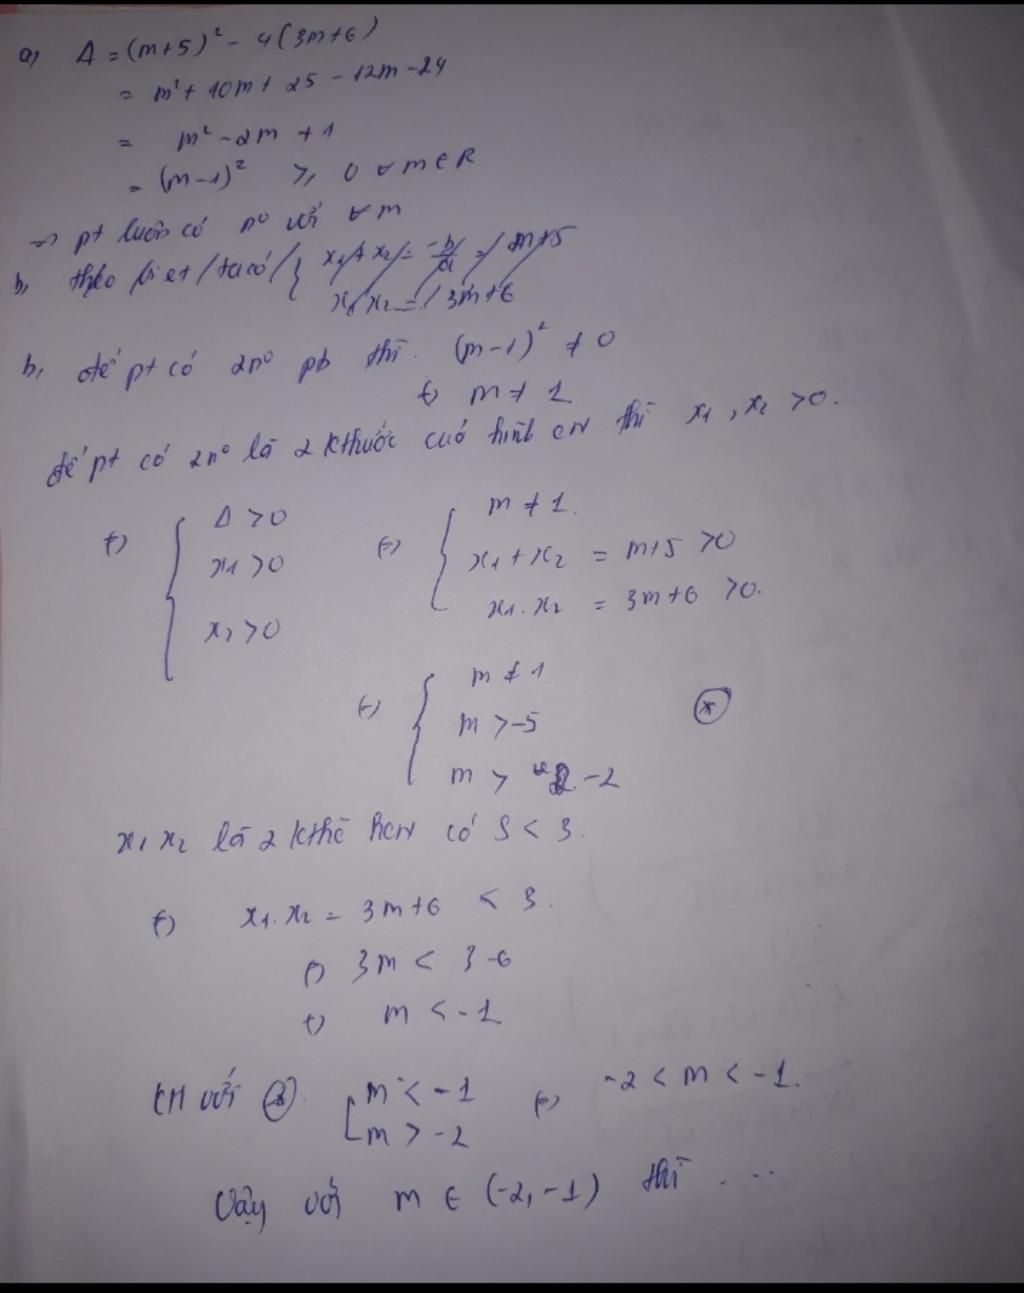 a, Δ = (m+5)² - 4(3m+6)
= m² + 10m + 25 - 12m - 24
= m² - 2m + 1
= (m-1)² ≥ 0 ∀ m ∈ R
=> pt luôn có n° với ∀ m
b, theo viet ta có { x₁ + x₂ = -b/a = m+5
x₁ x₂ = 3m+6
b, để pt có 2n° pb thì (m-1)² ≠ 0
(=) m ≠ 1
để pt có 2n° là 2 kthước cuả hình cn thì x₁, x₂ > 0.
(=) { Δ > 0 (=) { m ≠ 1.
x₁ > 0 x₁ + x₂ = m+5 > 0
x₂ > 0 x₁. x₂ = 3m+6 > 0.
(=) { m ≠ 1
m > -5 (*)
m > -2
x₁ x₂ là 2 kthc hcn có S < 3.
(=) x₁. x₂ = 3m+6 < 3.
(=) 3m < 3-6
(=) m < -1
KH với (*) [ m < -1 (=) -2 < m < -1.
m > -2
Vậy với m ∈ (-2, -1) thì ...